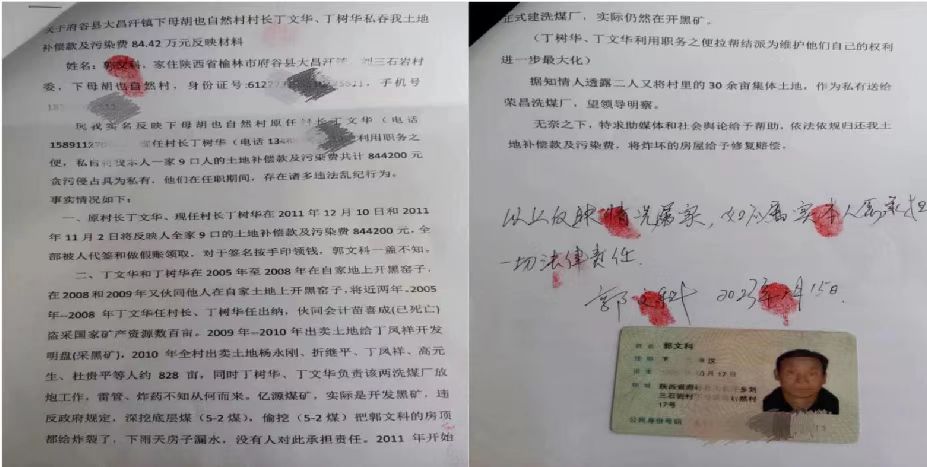 关于府谷县大昌汗镇下母胡也自然村村长丁文华、丁树华私吞我土地
补偿款及污染费84.42万元反映材料
姓名:郭文科,家住陕西省榆林市府谷县大昌汗 刘三石岩村
委,下母胡也自然村,身份证号:6127 手机号
民我实名反映下母胡也自然村原任村长丁文华(电话
1589112 现任村长丁树华(电话134 利用职务之
便,私自将反映人一家9口人的土地补偿款及污染费共计844200元
贪污侵占具为私有,他们在任职期间,存在诸多违法乱纪行为。
事实情况如下:
一、原村长丁文华、现任村长丁树华在2011年12月10日和2011
年11月2日将反映人全家9口的土地补偿款及污染费844200元,全
部被人代签和做假账领取,对于签名按手印领钱,郭文科一盖不知。
二、丁文华和丁树华在2005年至2008年在自家地上开黑窑子,
在2008和2009年又伙同他人在自家土地上开黑窑子,将近两年。2005
年--2008年丁文华任村长、丁树华任出纳,伙同会计苗喜成(已死亡)
盗采国家矿产资源数百亩。2009年--2010年出卖土地给丁凤祥开发
明盘(采黑矿),2010年全村出卖土地杨永刚、折继平、丁凤祥、高元
生、杜贵平等人约828亩,同时丁树华、丁文华负责该两洗煤厂放
炮工作,雷管、炸药不知从何而来。亿源煤矿,实际是开发黑矿,违
反政府规定,深挖底层煤(5-2煤),偷挖(5-2煤)把郭文科的房顶
都给炸裂了,下雨天房子漏水,没有人对此承担责任。2011年开始
正式建洗煤厂,实际仍然在开黑矿。
(丁树华、丁文华利用职务之便拉帮结派为维护他们自己的权利
进一步最大化)
据知情人透露二人又将村里的30余亩集体土地,作为私有送给
荣昌洗煤厂,望领导明察。
无奈之下,特求助媒体和社会舆论给予帮助,依法依规归还我土
地补偿款及污染费,将炸坏的房屋给予修复赔偿。
以上反映情况属实,如不属实本人愿承担
一切法律责任.
郭文科 2023年 月15日.
姓名 郭文科
汉
月17日
陕西省府 乡刘
三石岩村 然村
17号
公民身份号码